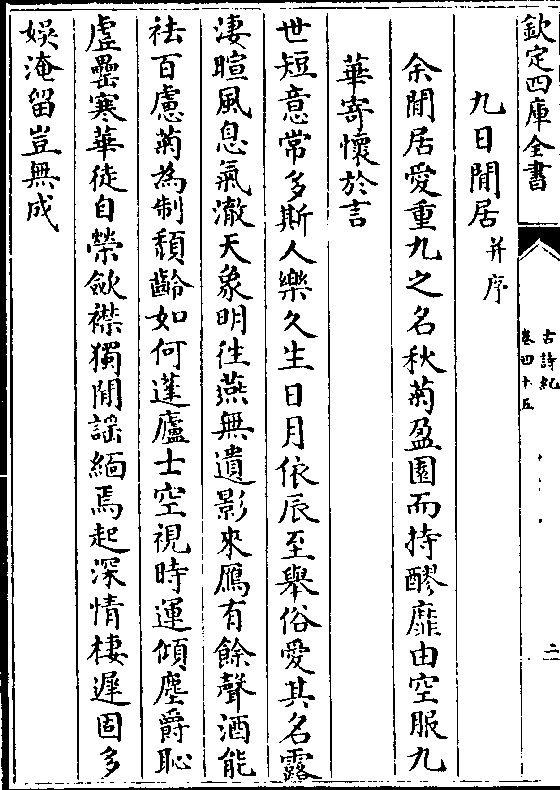 欽定四庫全書
古詩紀
卷四十五
二
九日閒居并序
余閒居愛重九之名秋菊盈園而持醪靡由空服九
華寄懷於言
世短意常多斯人樂久生日月依辰至舉俗愛其名露
淒暄風息氣澈天象明往燕無遺影來鴈有餘聲酒能
祛百慮菊為制頽齡如何蓬廬士空視時運傾塵爵恥
虚罍寒華徒自榮歛襟獨閒謡緬焉起深情棲遲固多
娱淹留豈無成